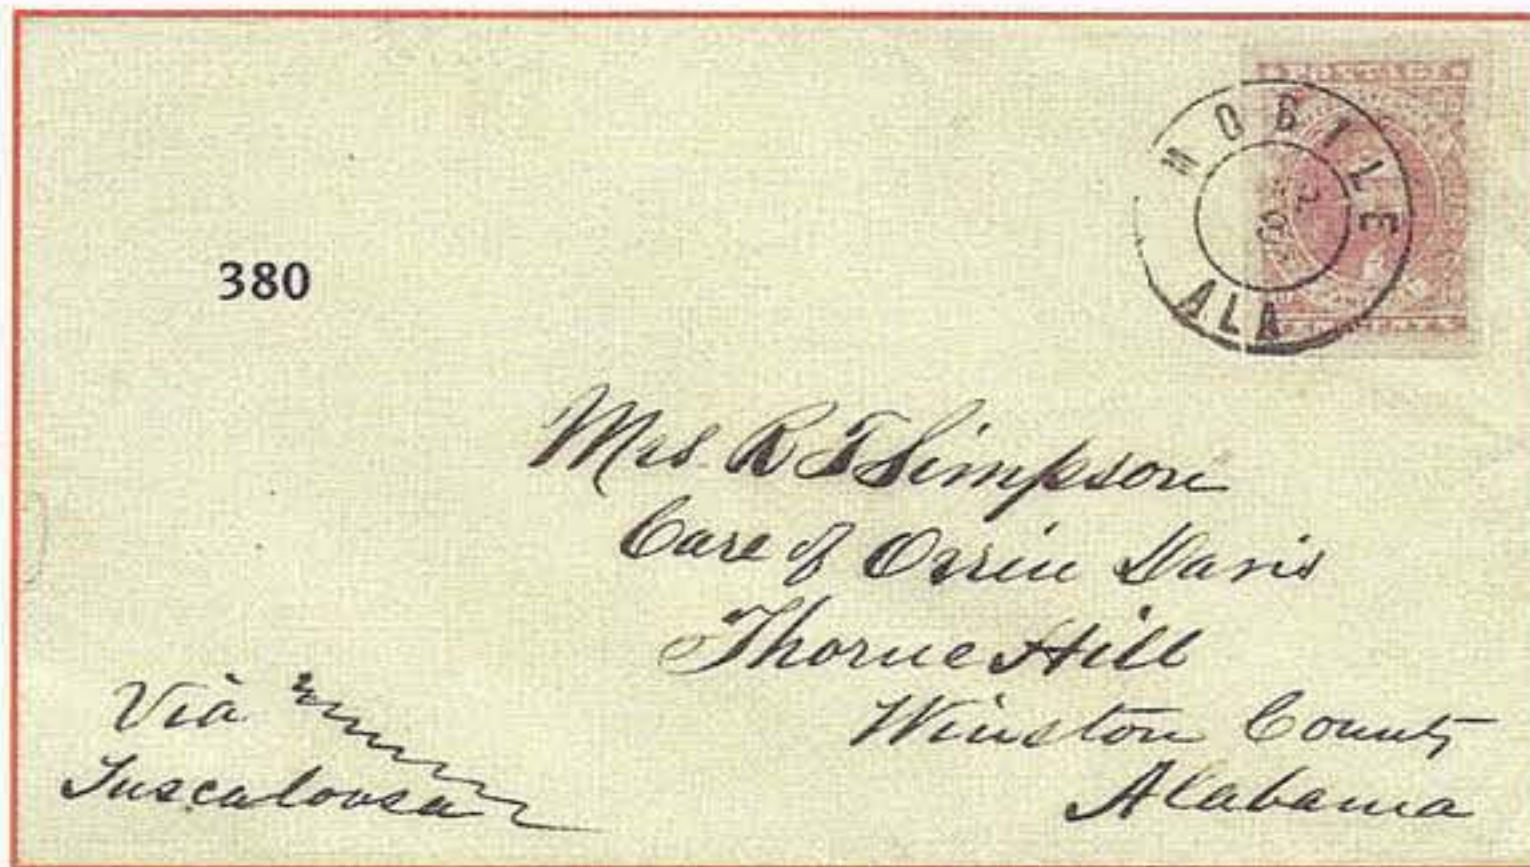 POSTAGE
MOBILE
ALA
380
Mrs R T Simpson
Care of Orrin Davis
Thorne Hill
Winston County
Alabama
Via
Tuscaloosa